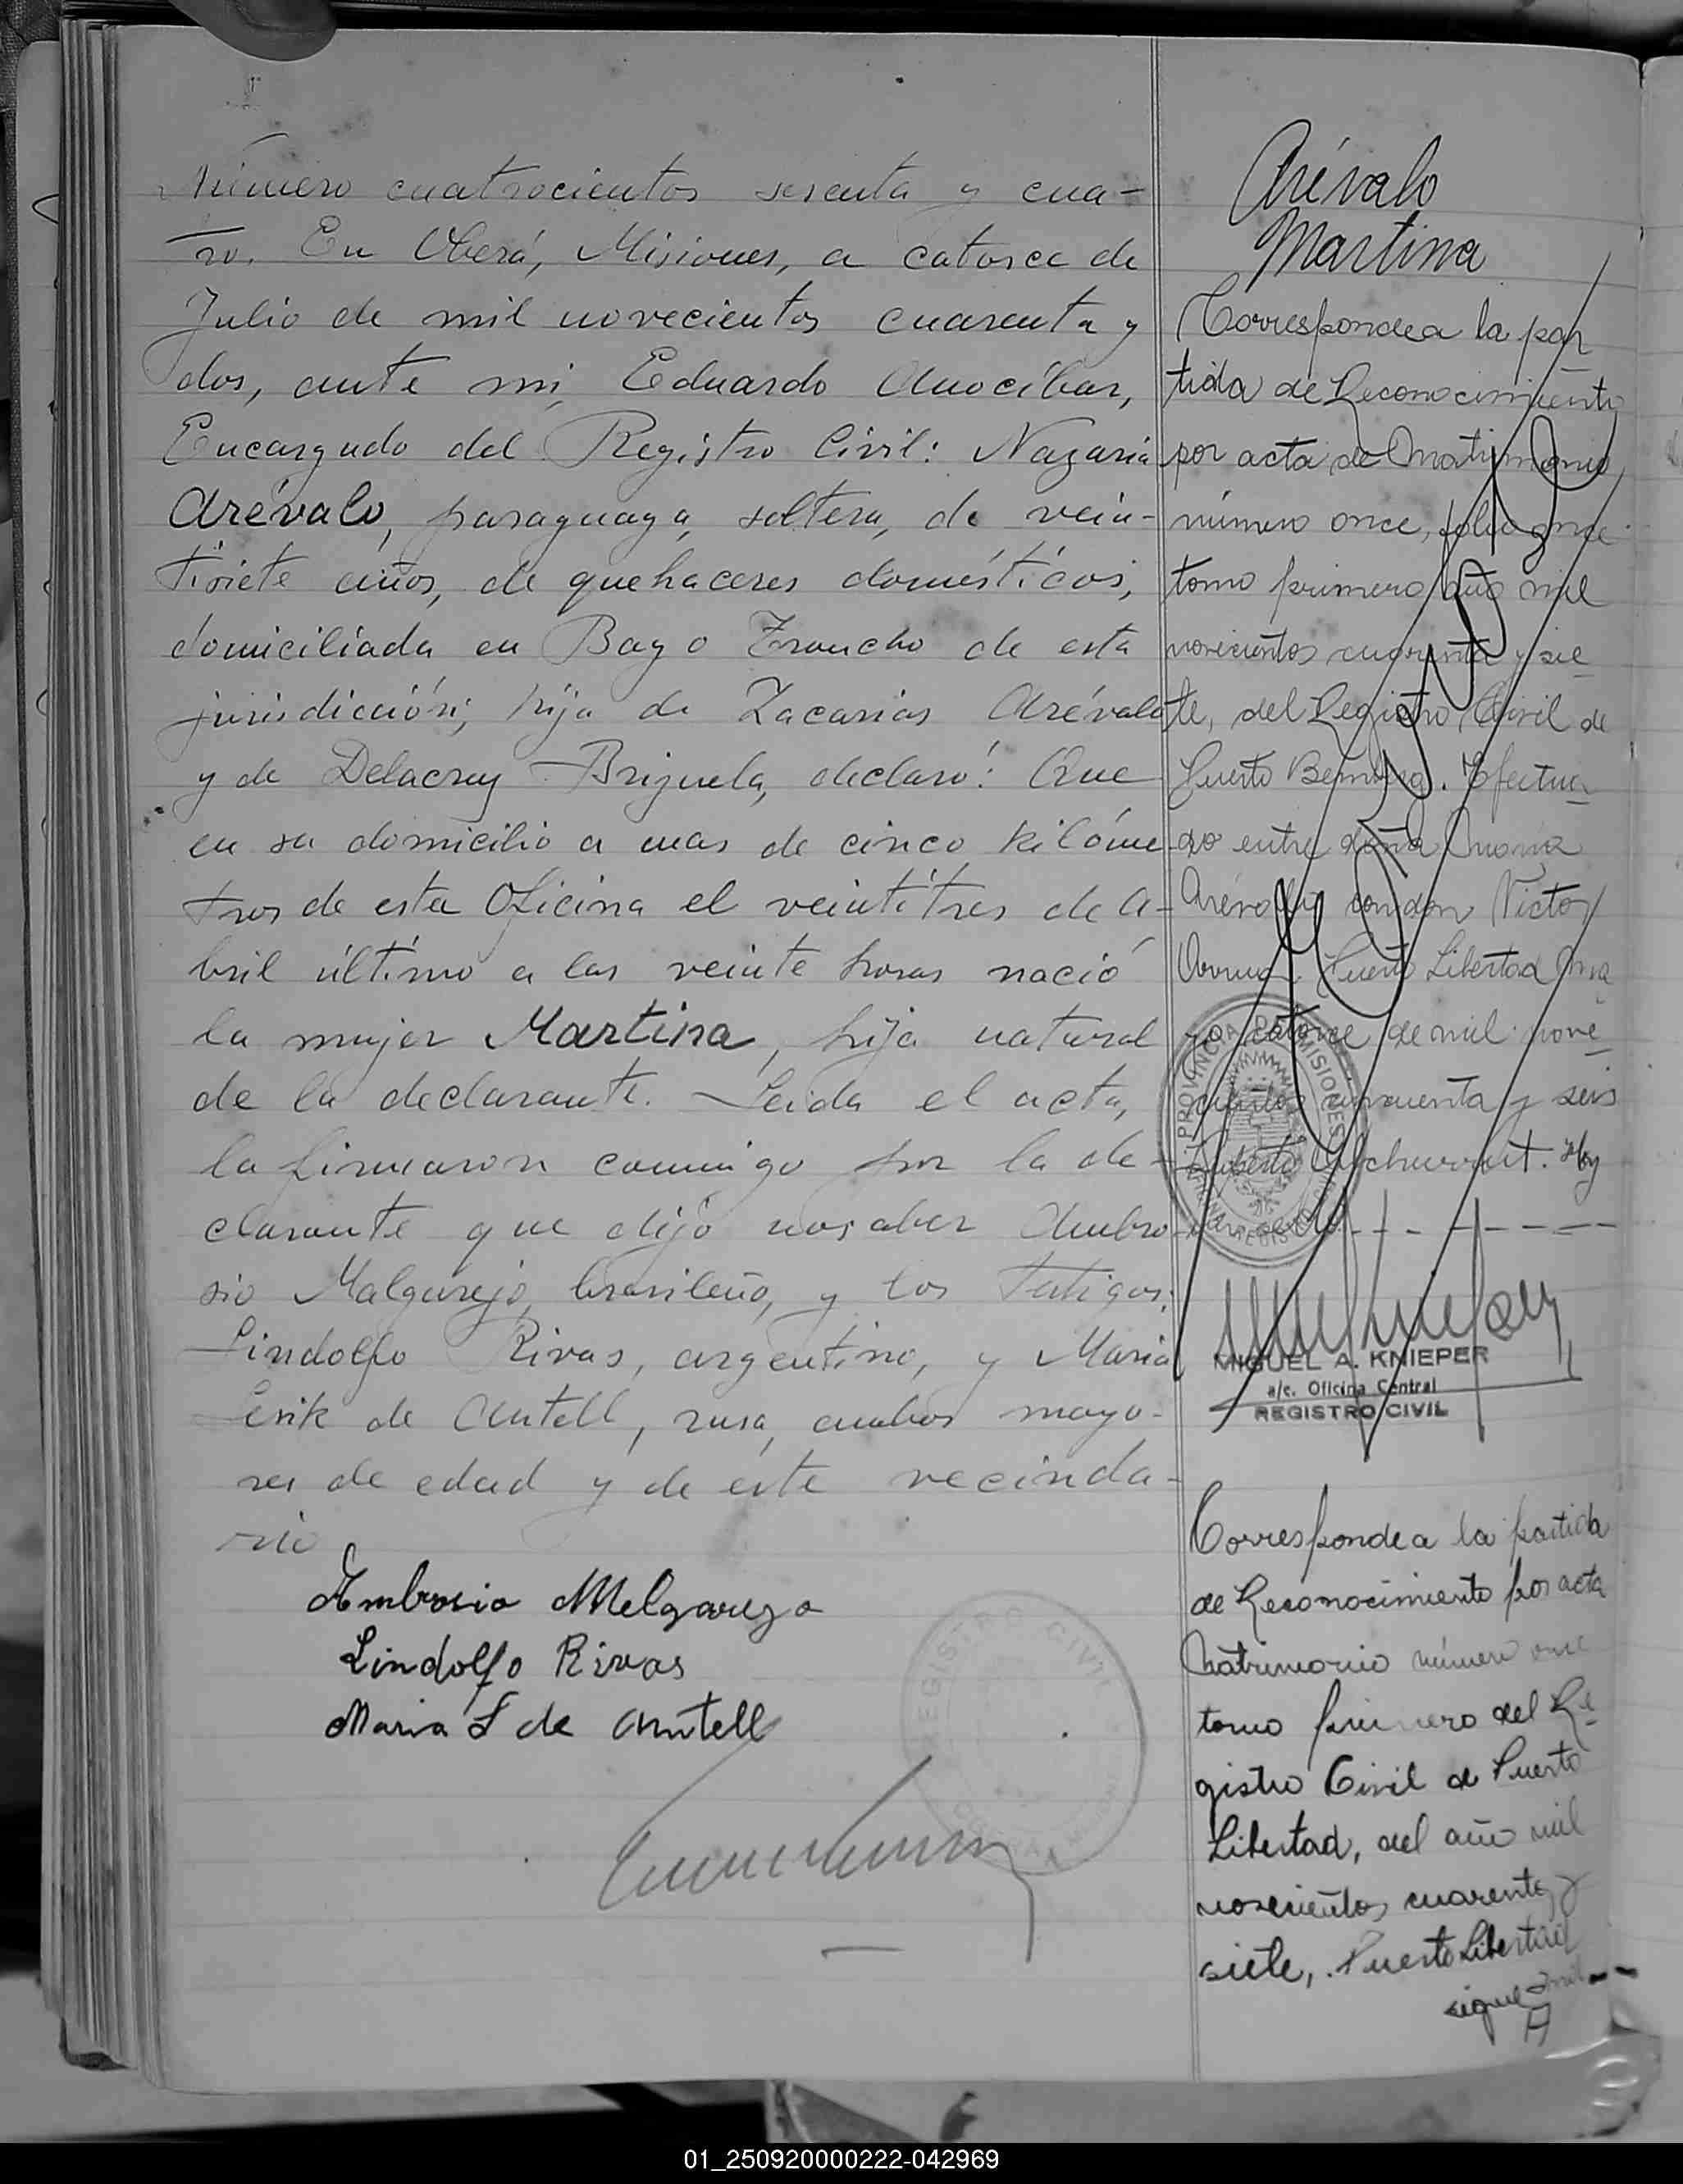 Número cuatrocientos sesenta y cua-
tro. En Oberá, Misiones, a catorce de
Julio de mil novecientos cuarenta y
dos, ante mi, Eduardo Anocíbar,
Encargado del Registro Civil: Nazaria
Arévalo, paraguaya, soltera, de vein-
tisiete años, de quehaceres domésticos,
domiciliada en Bayo Troncho de esta
jurisdicción, hija de Zacarias Arévalo
y de Delacruz Brizuela, declaró: Que
en su domicilio a mas de cinco kilóme
tros de esta Oficina el veintitres de A-
bril último a las veinte horas nació
la mujer Martina, hija natural
de la declarante. Leida el acta,
la firmaron conmigo por la de-
clarante que dijo no saber Ambro
sio Malgarejo, brasileño, y los testigos:
Lindolfo Rivas, argentino, y Maria
Lerik de Antell, rusa, ambos mayo-
res de edad y de este vecinda-
rio
Ambrosio Melgarejo
Lindolfo Rivas
Maria L de Antell
REGISTRO CIVIL
Arévalo
Martina
Corresponde a la par
tida de Reconocimiento
por acta de Matrimonio
número once, folio once
tomo primero año mil
novecientos cuarenta y sie
te, del Registro Civil de
Puerto Bemberg. Efectua
do entre doña María
Arévalo con don Victor
Puerto Libertad Ma
yo catorce de mil nove
cientos cincuenta y seis
Hoy
PROVINCIA DE MISIONES
MIGUEL A. KNIEPER
a/c. Oficina Central
REGISTRO CIVIL
Corresponde a la partida
de Reconocimiento por acta
Matrimonio número once
tomo primero del Re
gistro Civil de Puerto
Libertad, del año mil
novecientos cuarenta y
siete, Puerto Libertad
sigue
01_250920000222-042969